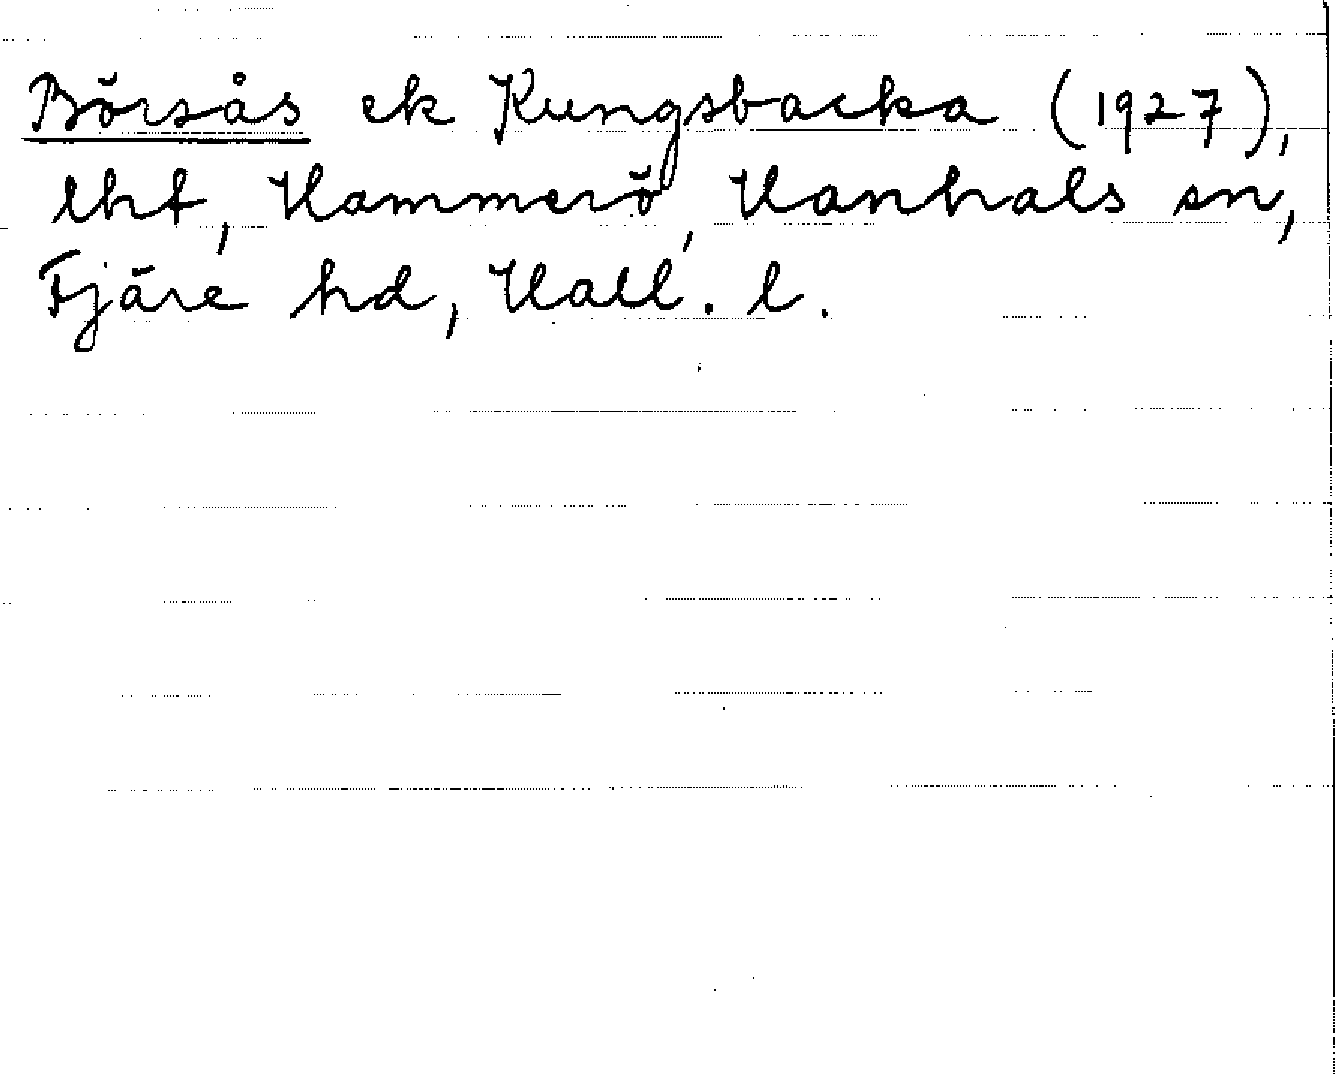 Börsås ek Kungsbacka (1927),
lht, Hammerö, Hanhals sn,
Fjäre hd, Hall. l.